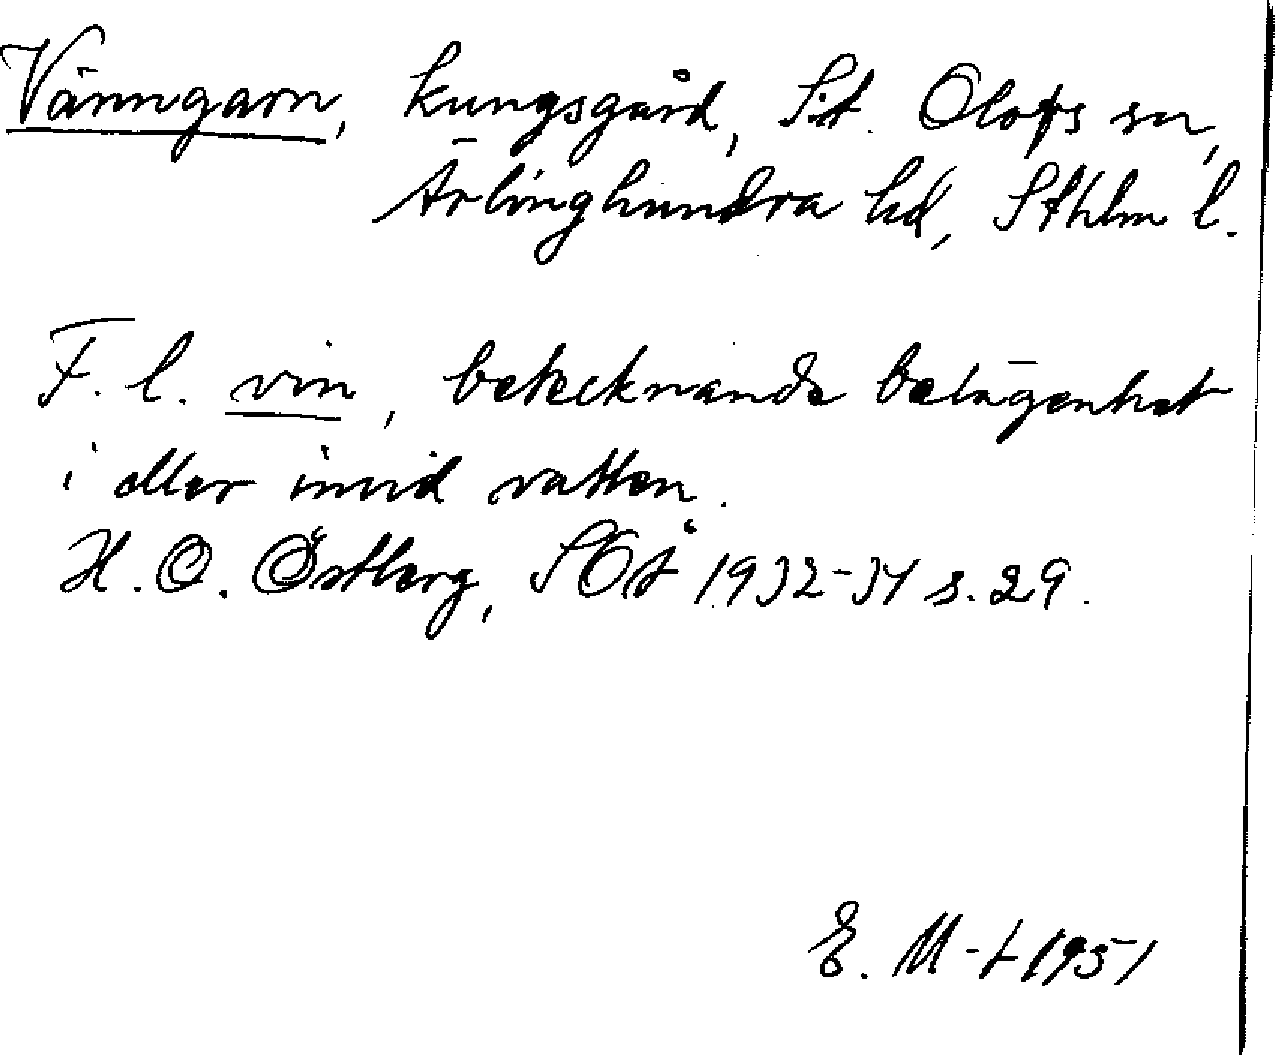 Vänngarn, kungsgård, S:t. Olofs sn,
Ärlinghundra hd, Sthlm l.
F. l. vin, betecknande belägenhet
i eller invid vatten.
H. O. Östberg, SOÅ 1932-34 s. 29.
E. M-t 1951